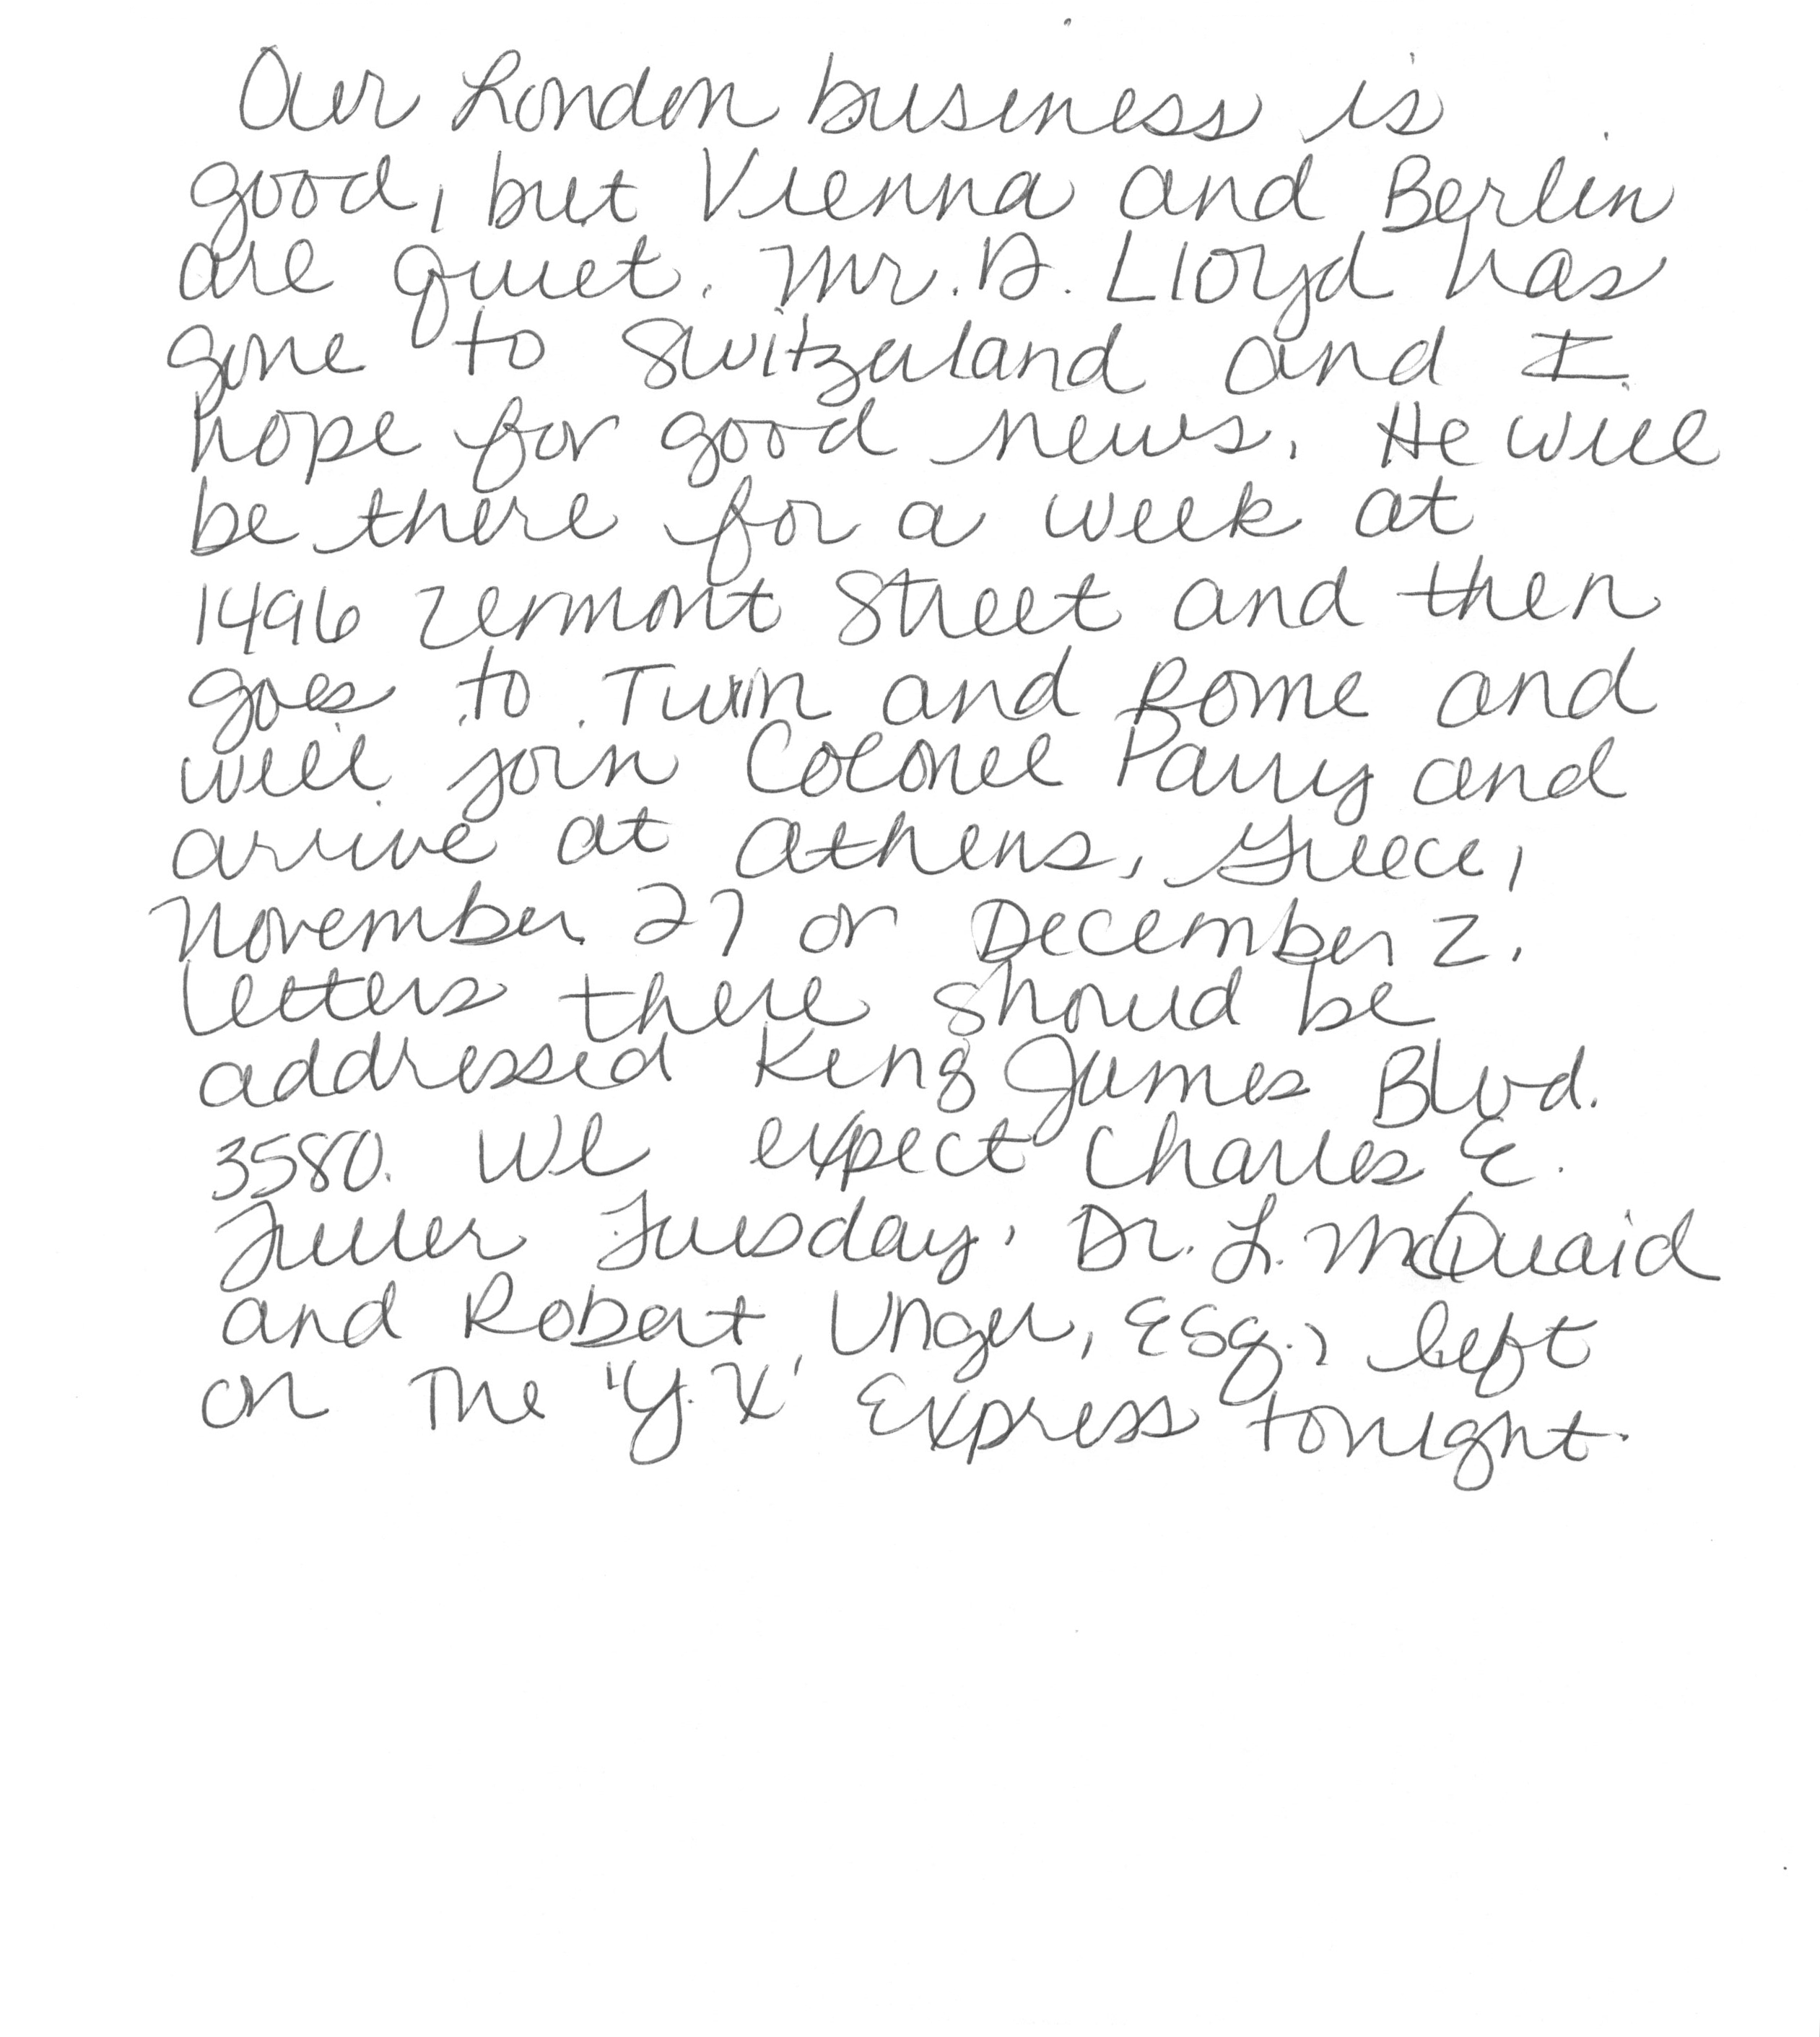 Our London business is
good, but Vienna and Berlin
are quiet. Mr. D. Lloyd has
gone to Switzerland and I
hope for good news. He will
be there for a week at
1496 Zermont Street and then
goes to Turin and Rome and
will join Colonel Parry and
arrive at Athens, Greece,
November 27 or December 2.
Letters there should be
addressed King James Blvd.
3580. We expect Charles E.
Fuller Tuesday. Dr. L. McQuaid
and Robert Unger, Esq., left
on The 'Y.X' Express tonight.